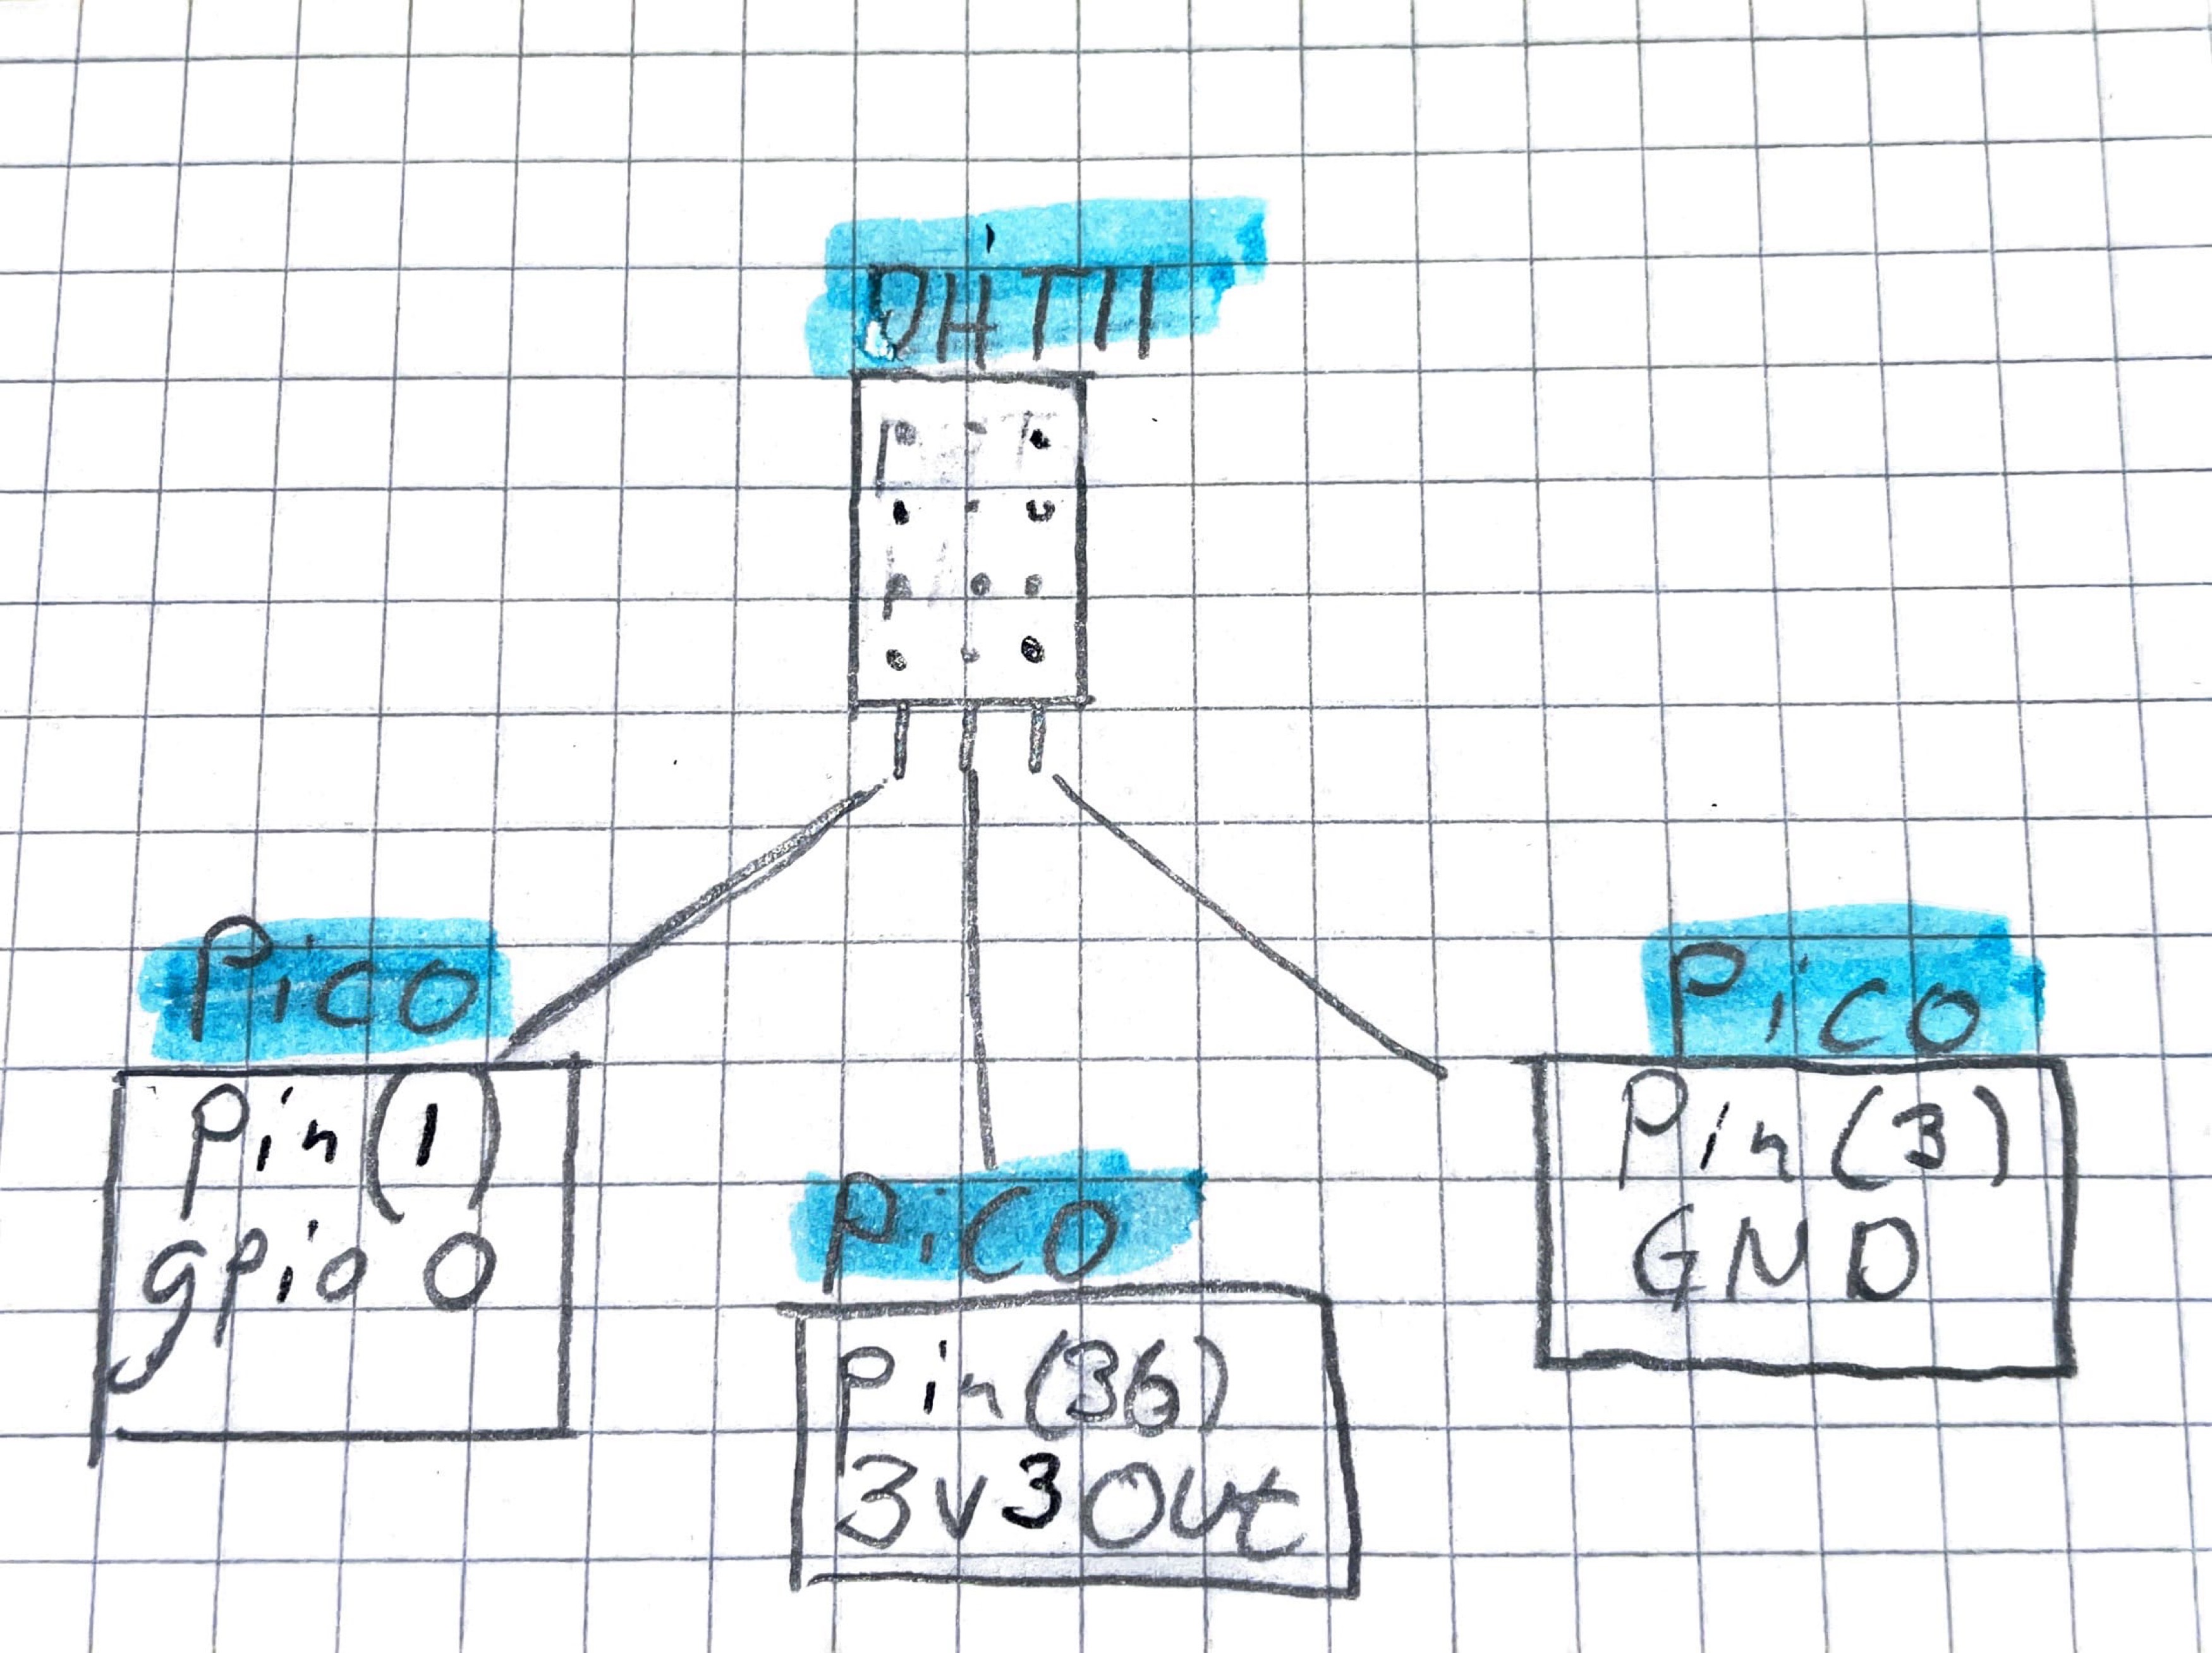 DHT11
Pico
Pin(1)
gpio 0
Pico
Pin(36)
3v3 Out
Pico
Pin(3)
GND